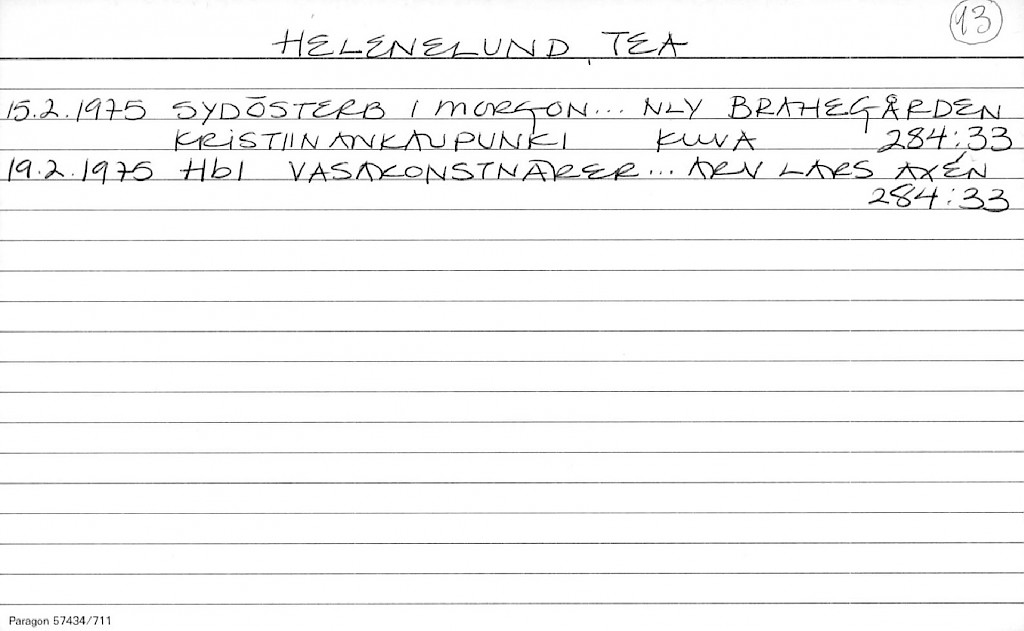 93
HELENELUND, TEA
15.2.1975 SYDÖSTERB I MORGON... NLY BRAHEGÅRDEN
KRISTIINANKAUPUNKI KUVA 284:33
19.2.1975 Hbl VASAKONSTNÄRER... ARV LARS AXÉN
284:33
Paragon 57434/711